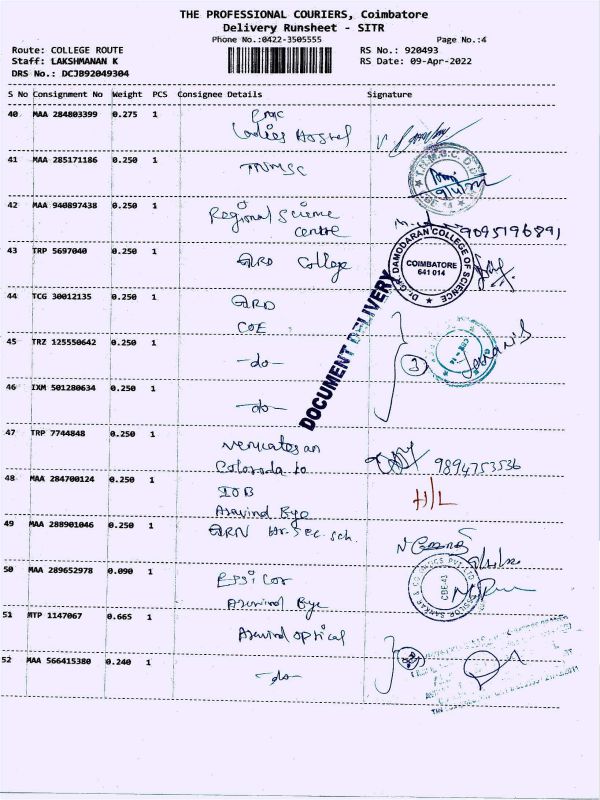 THE PROFESSIONAL COURIERS, Coimbatore
Delivery Runsheet - SITR
Phone No.:0422-3505555
Page No.:4
Route: COLLEGE ROUTE
RS No.: 920493
Staff: LAKSHMANAN K
RS Date: 09-Apr-2022
DRS No.: DCJB92049304
S No Consignment No Weight PCS Consignee Details Signature
40 MAA 284803399 0.275 1
Ladies Hostel
41 MAA 285171186 0.250 1 TNMSC
42 MAA 940897438 0.250 1 Regional Science
Centre
9095196891
43 TRP 5697040 0.250 1 GRD College
Dr. G.R. DAMODARAN COLLEGE OF SCIENCE
COIMBATORE
641 014
44 TCG 30012135 0.250 1 GRD
COE
DOCUMENT DELIVERY
45 TRZ 125550642 0.250 1 -do-
3
46 IXM 501280634 0.250 1 -do-
47 TRP 7744848 0.250 1
9894753536
48 MAA 284700124 0.250 1 IOB
H/L
Aravind Eye
49 MAA 288901046 0.250 1 GRN Hr. Sec. Sch.
50 MAA 289652978 0.090 1
Aravind Eye
51 MTP 1147067 0.665 1 Aravind optical
52 MAA 566415380 0.240 1 -do-